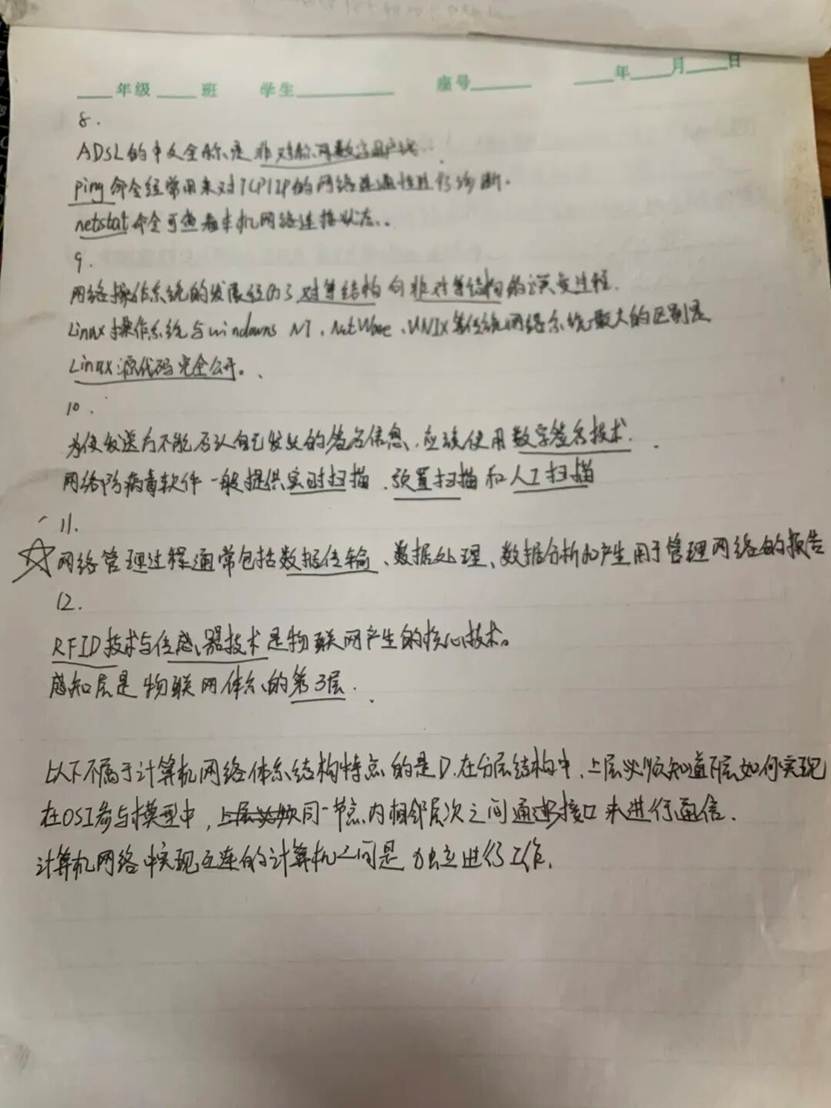 ___年级___班 学生______ 座号____ ___年___月___日
8.
ADSL的中文全称是非对称两数字用户线.
ping命令经常用来对TCP/IP的网络连通性进行诊断.
netstat命令可查看本机网络连接状态.
9.
网络操作系统的发展经历了对等结构向非对等结构的演变过程.
Linux操作系统与windowns NT、NetWare、UNIX等传统网络系统最大的区别是
Linux源代码完全公开。
10.
为使发送方不能否认自己发出的签名信息,应该使用数字签名技术.
网络防病毒软件一般提供实时扫描、预置扫描和人工扫描
11.
☆网络管理过程通常包括数据传输、数据处理、数据分析和产生用于管理网络的报告
12.
RFID技术与传感器技术是物联网产生的核心技术。
感知层是物联网体系的第3层.
以下不属于计算机网络体系结构特点的是D.在分层结构中,上层必须知道下层如何实现
在OSI参与模型中,同一节点内相邻层次之间通过接口来进行通信.
计算机网络中实现互连的计算机之间是独立进行工作.